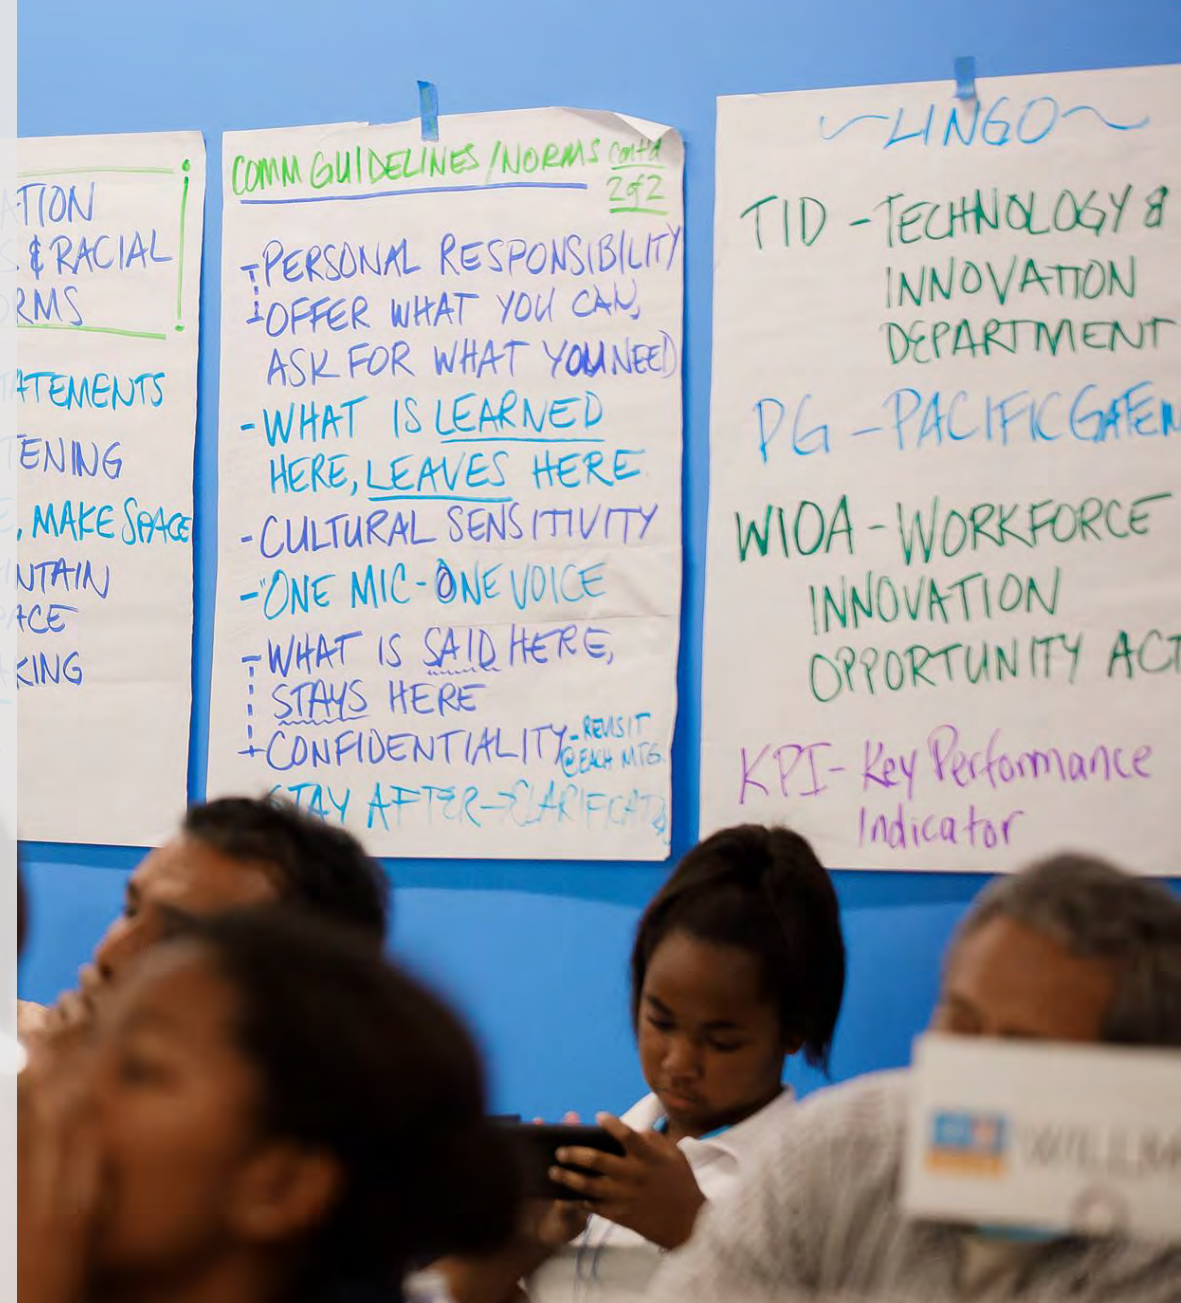 TION
& RACIAL
RMS
TATEMENTS
TENING
, MAKE SPACE
NTAIN
ACE
KING
COMM GUIDELINES/NORMS cont'd
2 of 2
- PERSONAL RESPONSIBILITY
- OFFER WHAT YOU CAN,
ASK FOR WHAT YOU NEED
- WHAT IS LEARNED
HERE, LEAVES HERE
- CULTURAL SENSITIVITY
- "ONE MIC - ONE VOICE
- WHAT IS SAID HERE,
STAYS HERE
CONFIDENTIALITY - REVISIT
@ EACH MTG.
STAY AFTER → CLARIFICAT
~LINGO~
TID - TECHNOLOGY &
INNOVATION
DEPARTMENT
PG - PACIFIC GATEW
WIOA - WORKFORCE
INNOVATION
OPPORTUNITY ACT
KPI - Key Performance
Indicator